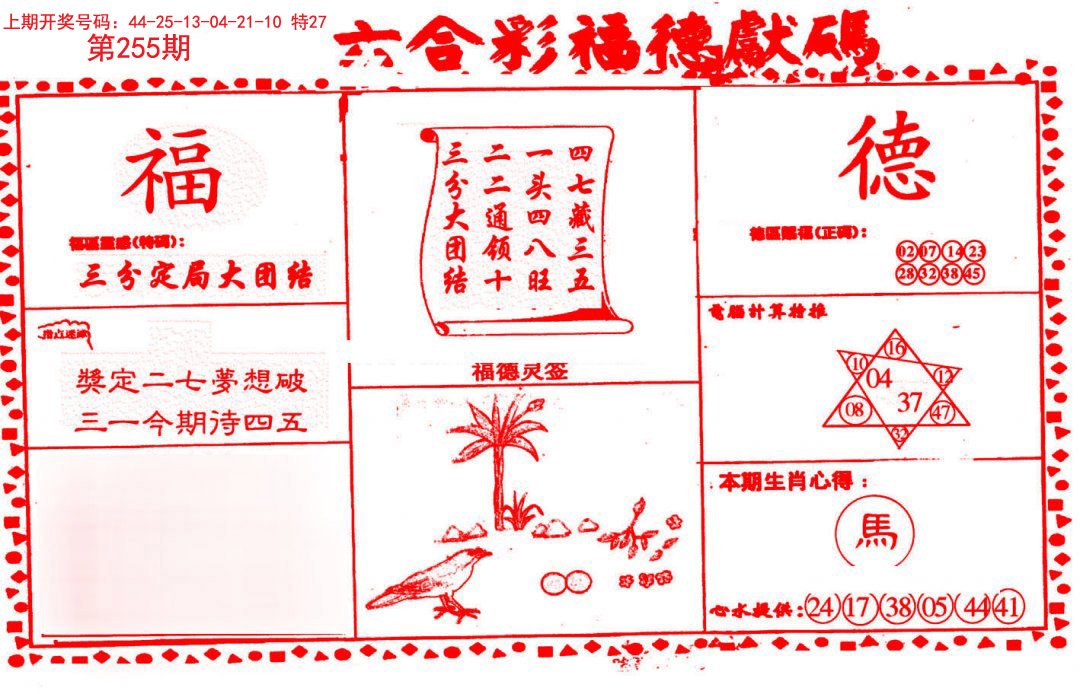 上期开奖号码：44-25-13-04-21-10 特27
第255期
六合彩福德獻碼
福
福區靈感(特碼)：
三分定局大团结
指点迷津
獎定二七夢想破
三一今期待四五
四七藏三五
一头四八旺
二二通领十
三分大团结
福德灵签
德
德區賜福(正碼)：
02 07 14 23
28 32 38 45
電腦計算特推
16
10 04 12
08 37 47
32
本期生肖心得：
馬
心水提供：24 17 38 05 44 41